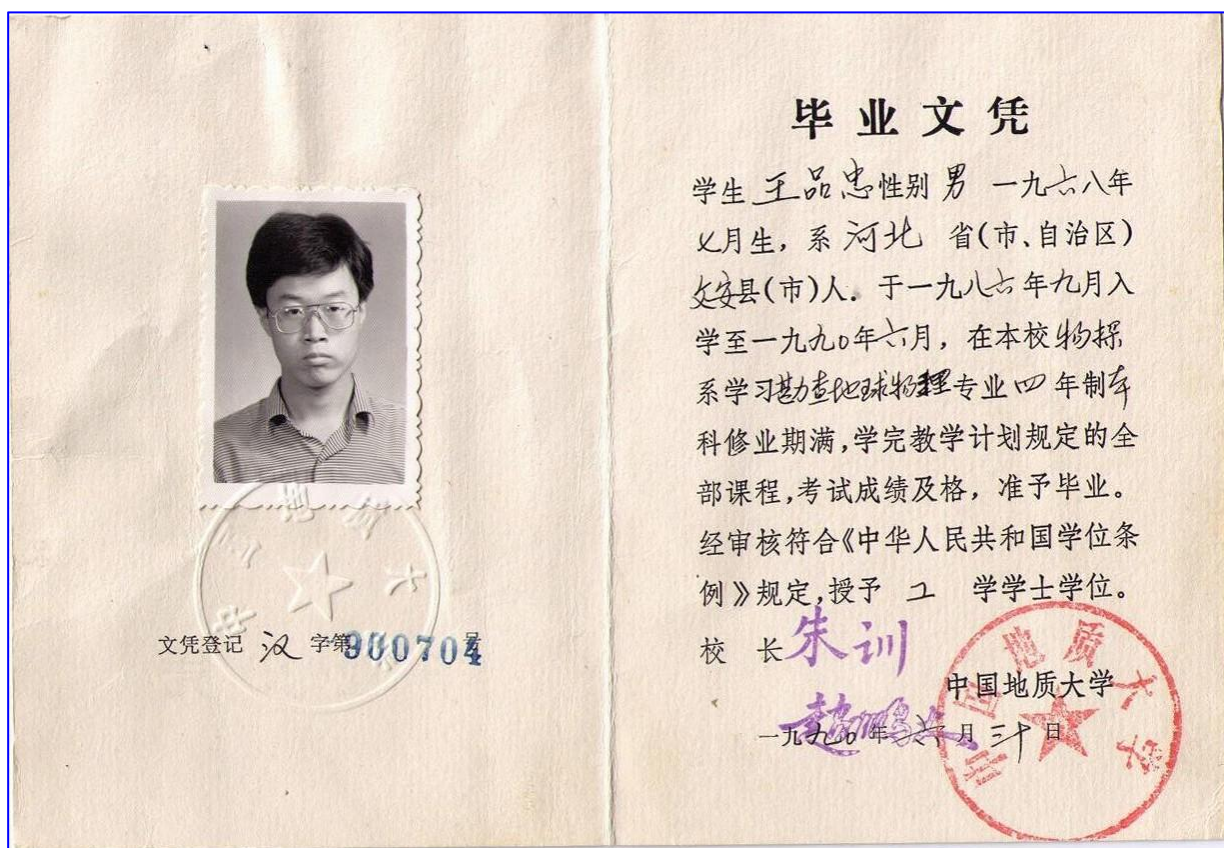 文凭登记 汉 字第900704号
中国地质大学
毕业文凭
学生 王品忠 性别 男 一九六八年
七月生，系 河北 省(市、自治区)
文安县(市)人。于一九八六年九月入
学至一九九0年六月，在本校物探
系学习勘查地球物理专业四年制本
科修业期满，学完教学计划规定的全
部课程，考试成绩及格，准予毕业。
经审核符合《中华人民共和国学位条
例》规定，授予 工 学学士学位。
校 长 朱训
赵鹏大
中国地质大学
一九九0年六月三十日
中国地质大学